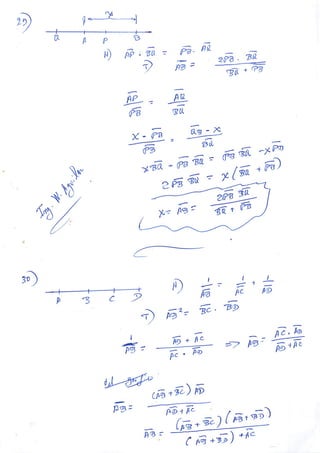 29)
x
Q A P B
H) A̅P̅ · B̅Q̅ = P̅B̅ · A̅Q̅
T) A̅B̅ = 2P̅B̅ · B̅Q̅ / B̅Q̅ + P̅B̅
A̅P̅ / P̅B̅ = A̅Q̅ / B̅Q̅
x - P̅B̅ / P̅B̅ = Q̅B̅ - x / B̅Q̅
x B̅Q̅ - P̅B̅ B̅Q̅ = P̅B̅ B̅Q̅ - x P̅B̅
2 P̅B̅ B̅Q̅ = x ( B̅Q̅ + P̅B̅ )
x = A̅B̅ = 2P̅B̅ B̅Q̅ / B̅Q̅ + P̅B̅
Ing. W.
30)
A B C D
H) 1 / A̅B̅ = 1 / A̅C̅ + 1 / A̅D̅
T) A̅B̅² = B̅C̅ · B̅D̅
1 / A̅B̅ = A̅D̅ + A̅C̅ / A̅C̅ · A̅D̅ => A̅B̅ = A̅C̅ · A̅D̅ / A̅D̅ + A̅C̅
A̅B̅ = ( A̅B̅ + B̅C̅ ) A̅D̅ / A̅D̅ + A̅C̅
A̅B̅ = ( A̅B̅ + B̅C̅ ) ( A̅B̅ + B̅D̅ ) / ( A̅B̅ + B̅D̅ ) + A̅C̅